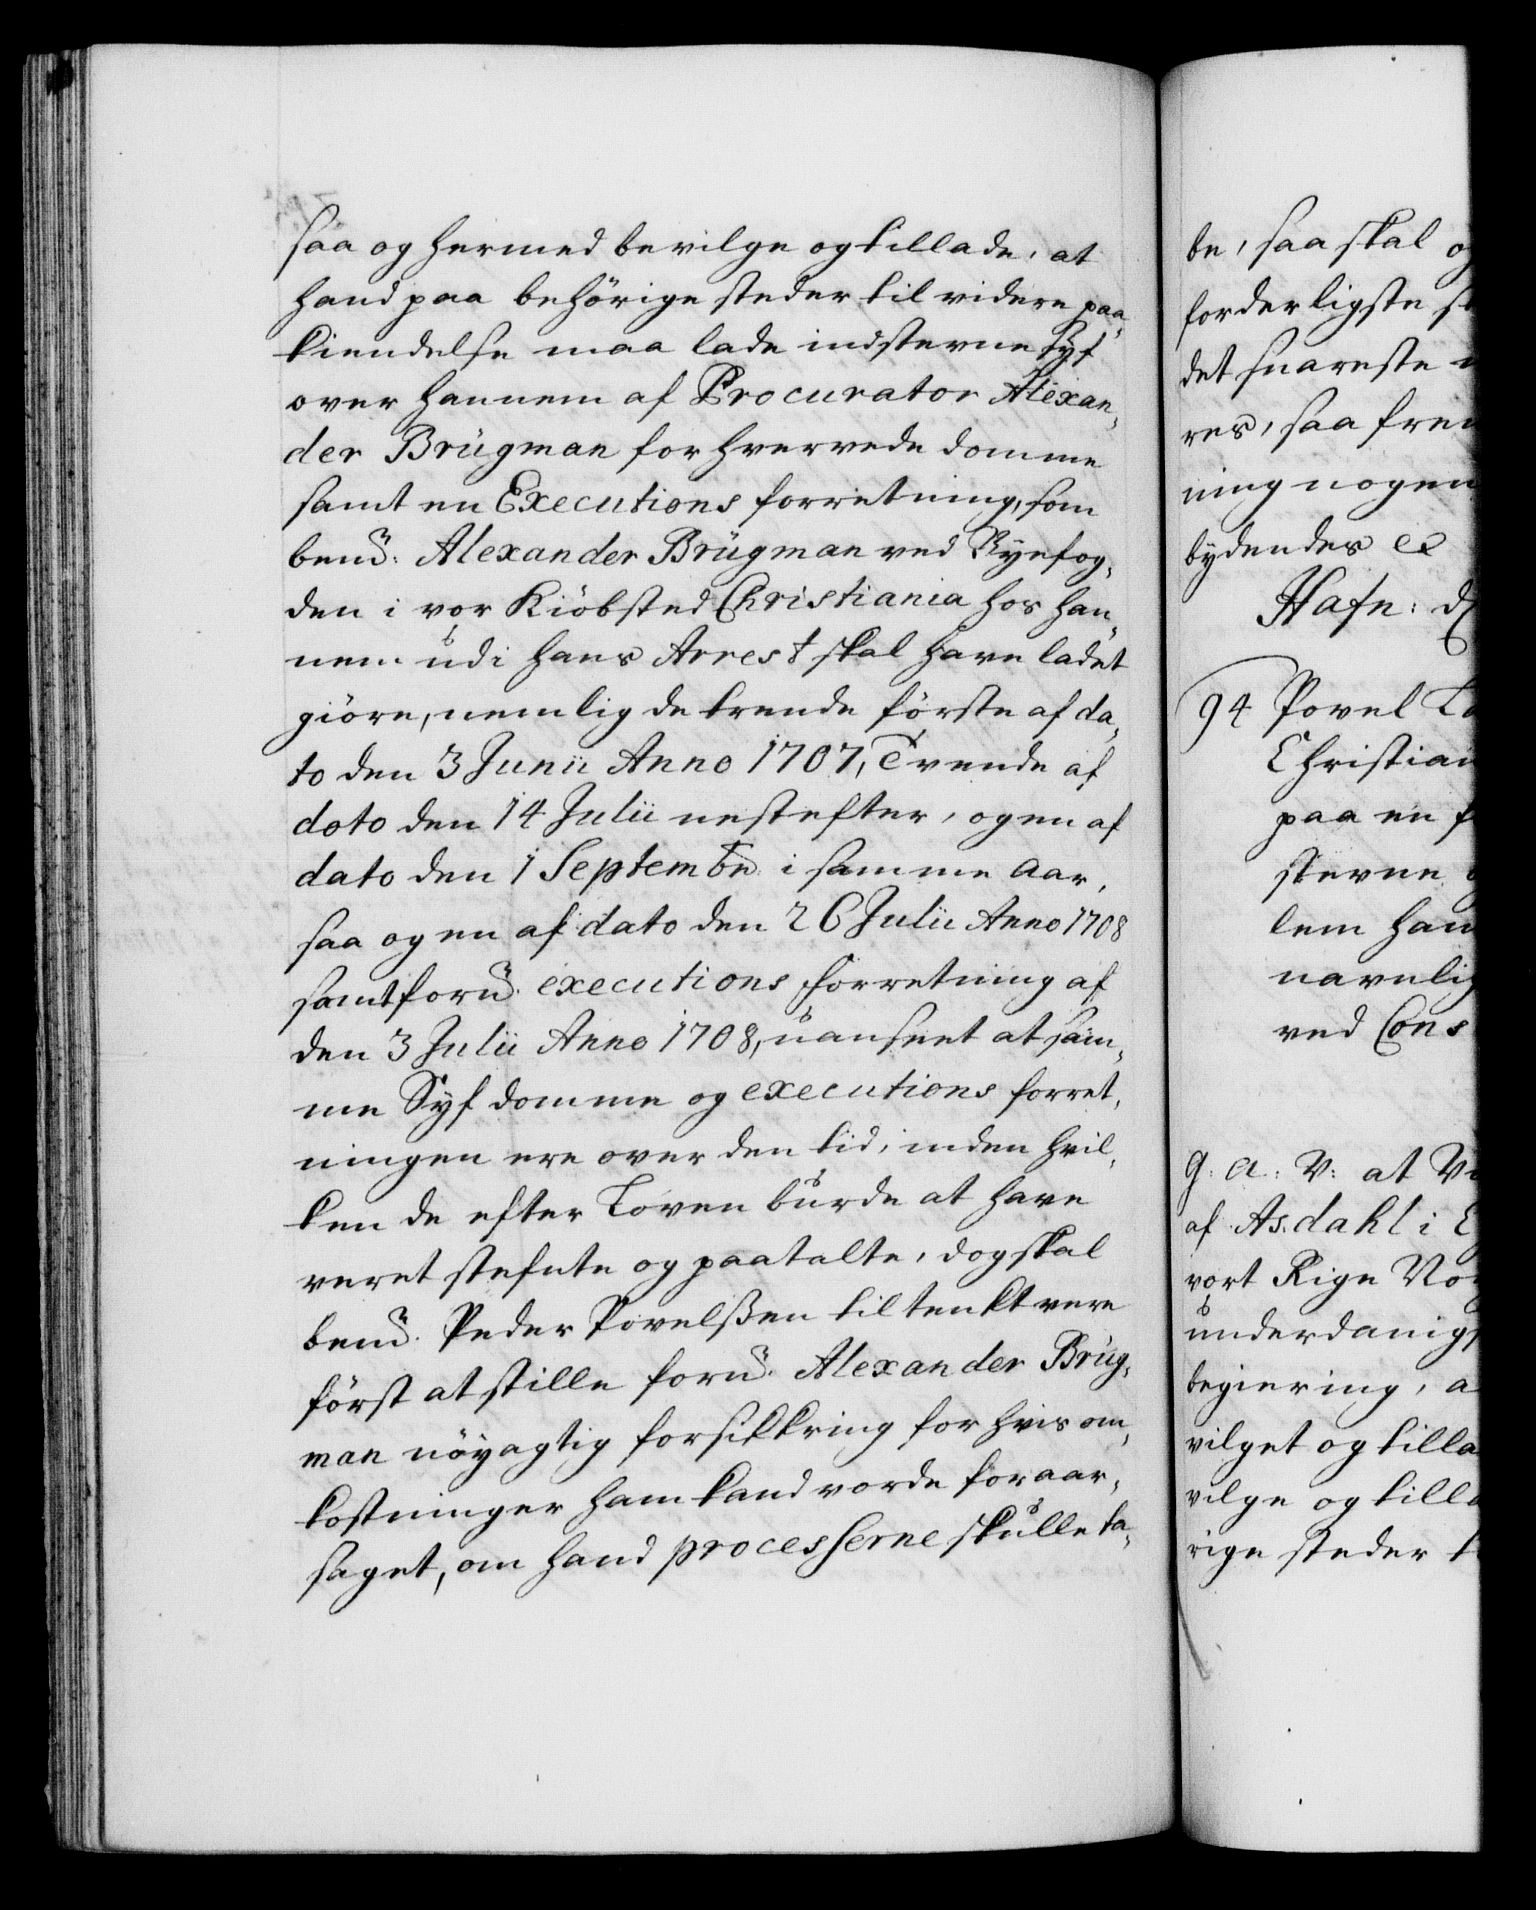 saa og hermed bevilge og tillade, at
hand paa behörige steder til videre paa-
kiendelse maa lade indstevne Syf
over hannem af Procurator Alexan-
der Brügman forhvervede domme
samt en Executions forretning, som
bemt: Alexander Brügman ved Byefog-
den i vor Kiöbsted Christiania hos han-
nem udi hans Arrest skal have ladet
giöre, nemlig de trende förste af da-
to den 3 Junii Anno 1707, Tvende af
doto den 14 Julii nestefter, og en af
dato den 1 Septembr i samme Aar,
saa og en af dato den 26 Julii Anno 1708
samt fornt executions forretning af
den 3 Julii Anno 1708, uanseet at sam-
me Syf domme og executions forret-
ningen ere over den tid, inden hvil-
ken de efter Loven burde at have
veret stefnte og paatalte, dog skal
bemt. Peder Povelsen tiltenkt vere
först at stille fornt. Alexander Brüg-
man nöyagtig forsikkring for hvis om-
kostninger ham kand vorde foraar-
saget, om hand processerne skulle ta-
be, saa skal og
forderligste
det snareste
res, saa frem
ning nogen
bydendes etc
Hafn: d
94 Povel
Christian
paa en
stevne
lem han
navnlig
ved Cons
G. A. V: at Vi
af Asdahl i
vort Rige Nor
underdanigst
begiering, a
vilget og tilla
vilge og tilla
rige steder t